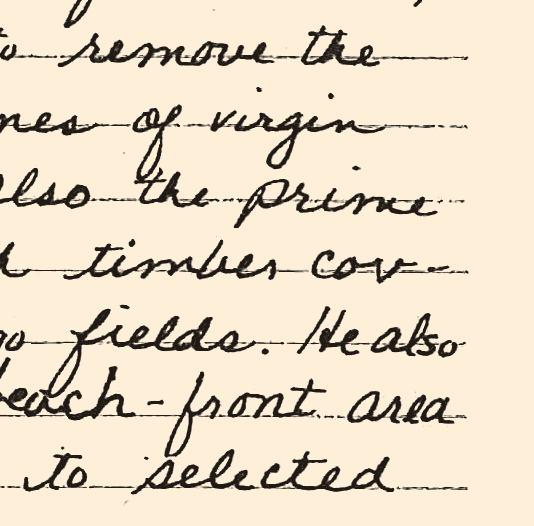 to remove the
of virgin
also the prime
timber cov-
fields. He also
beach-front area
to selected